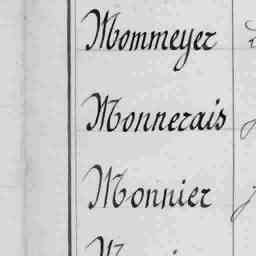 Mommeyer
Monnerais
Monnier